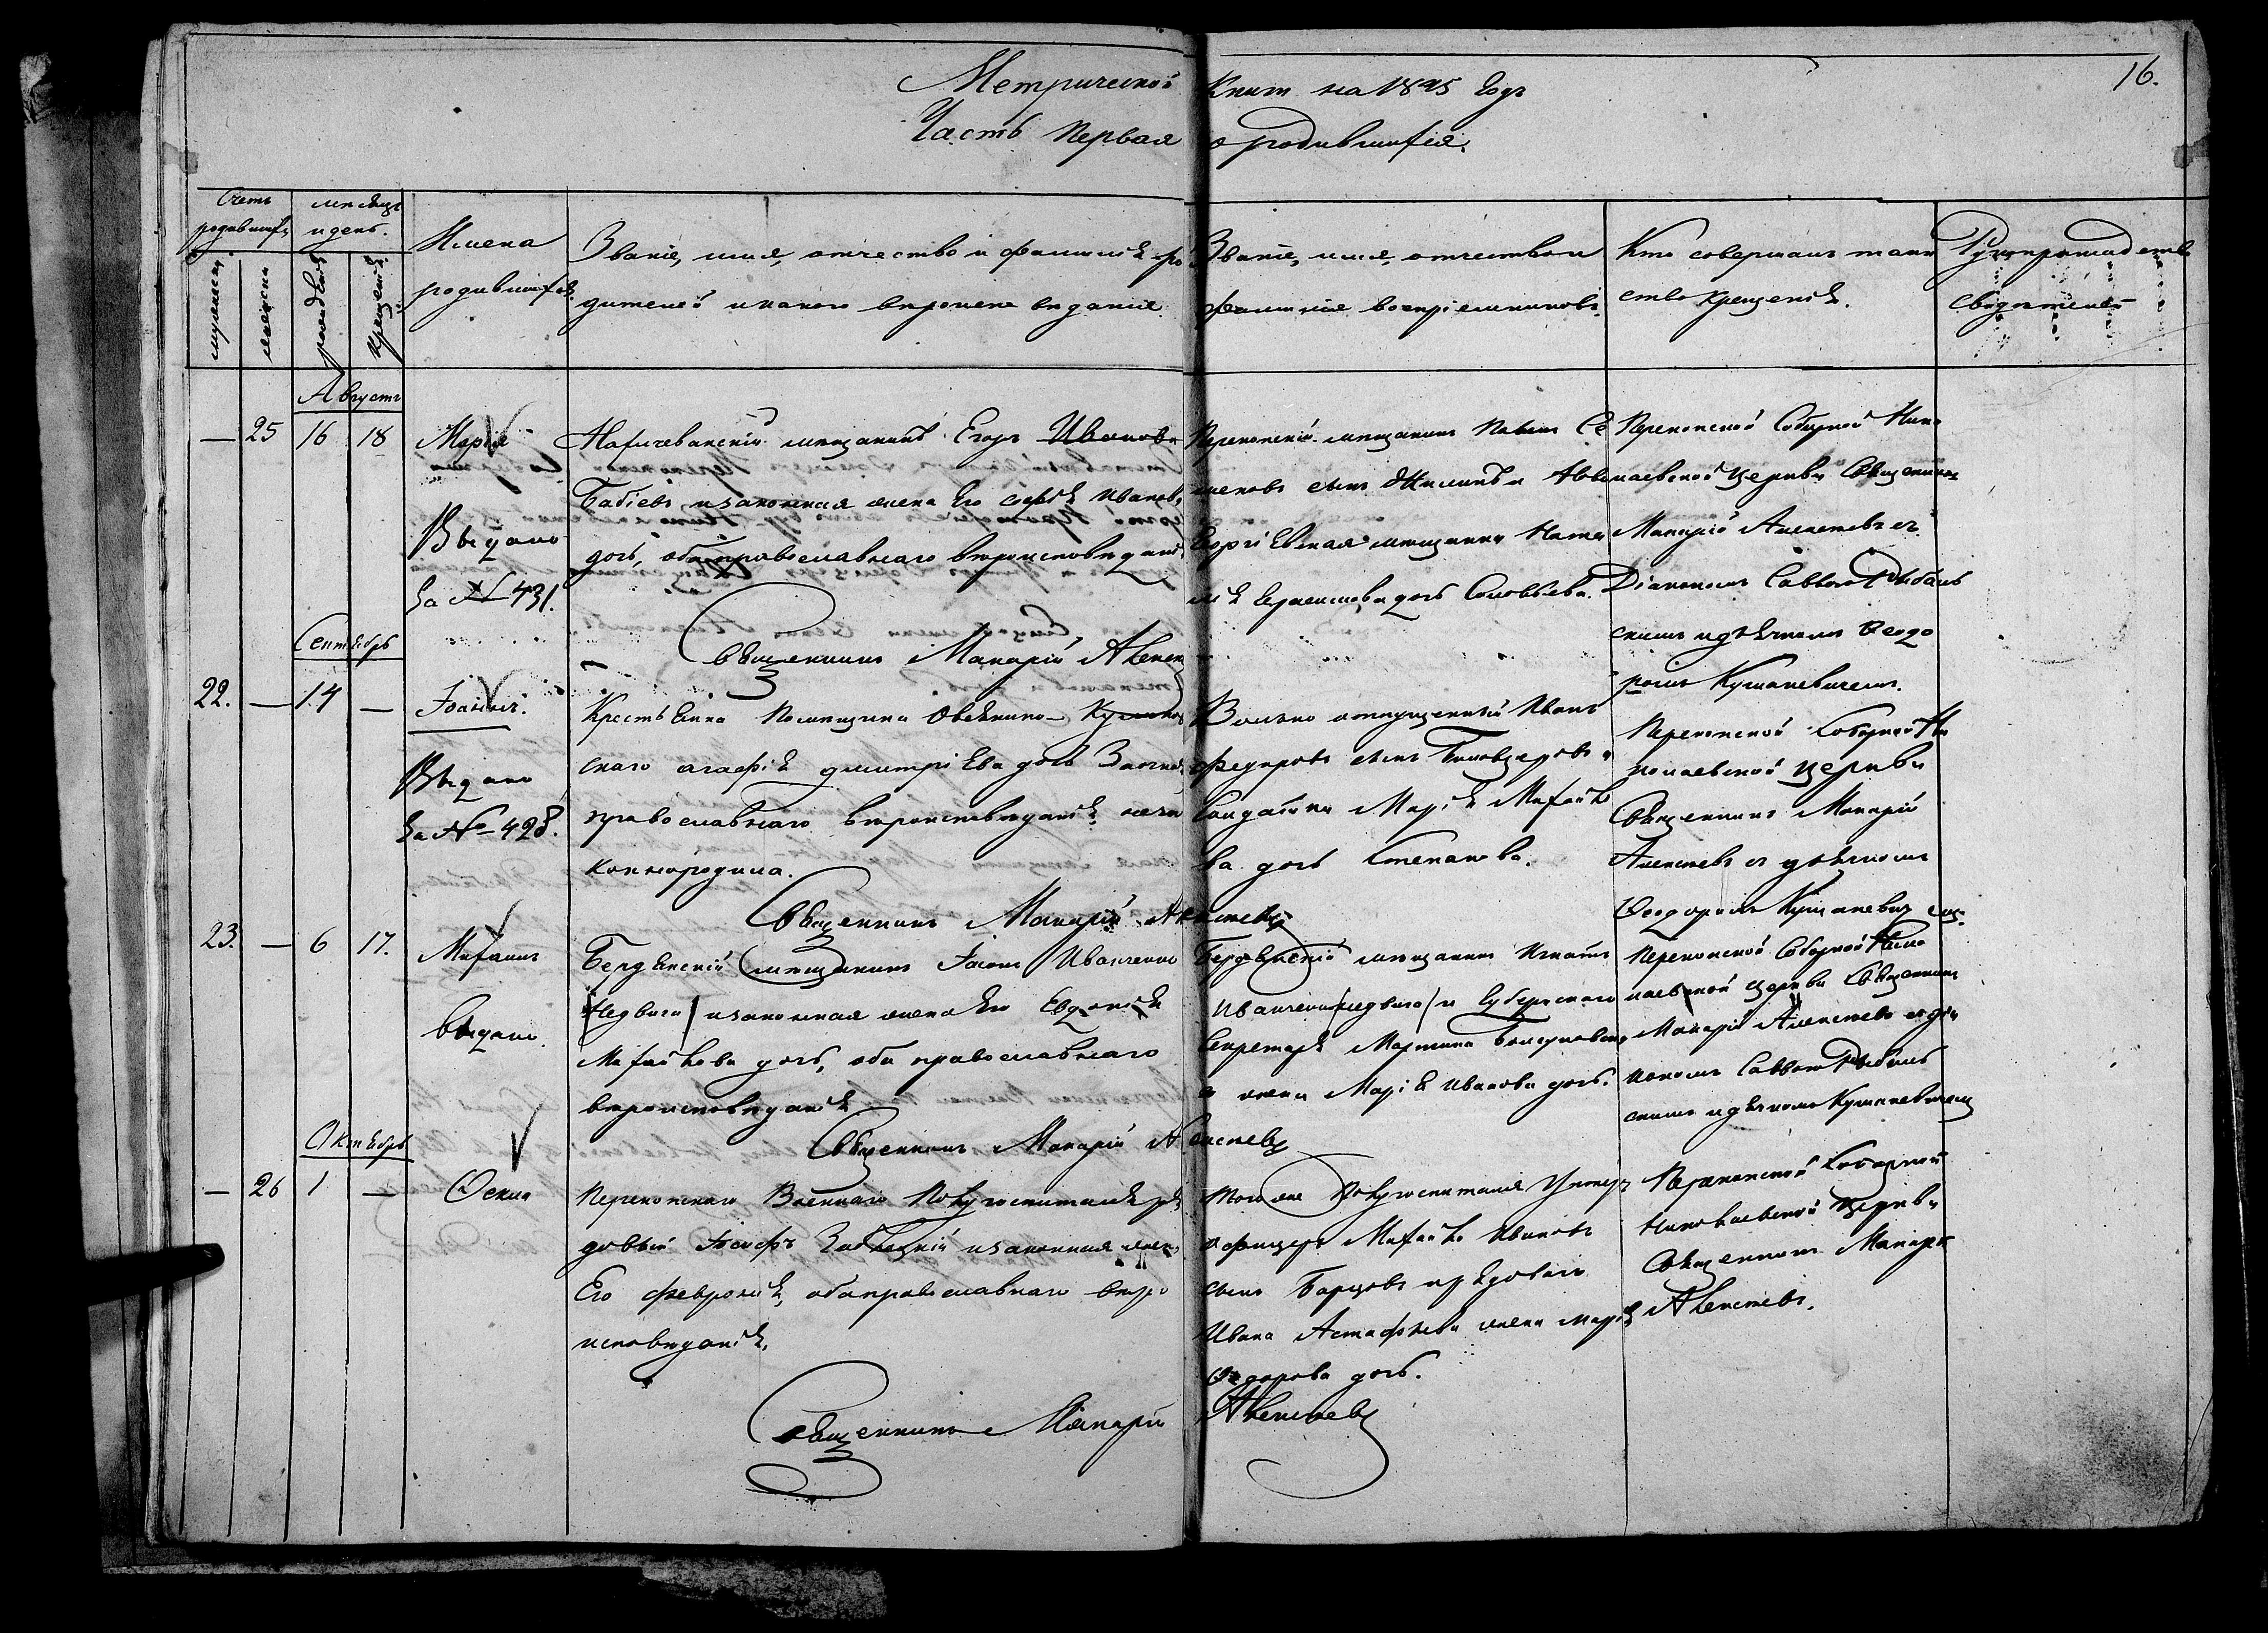 16.
Метрической Книги на 1845 Годъ
Часть Первая о родившихся.
Счетъ родившихъ
мѣсяцъ и день.
мужеска
женска
рожденія
крещенія
Имена
родившихся
Званіе, имя, отчество и фамилія ро
дителей и какого вѣроисповѣданія
Званіе, имя, отчество и
фамилія воспріемниковъ.
Кто совершалъ таин
ство крещенія.
Рукоприкладство
свидѣтелей
Августъ
— 25 16 18 Марія
Выдано
за № 431.
Нахичеванскій мещанинъ Егоръ Ивановъ
Бабіевъ и законная жена Его Софія Иванова
дочь, оба православнаго вѣроисповѣданія
Священникъ Макарій Алексѣевъ
Перекопскій мещанинъ
сынъ
Георгіевская мещанка Ната
лія дочь Соловьева.
Перекопской Соборной Нико
лаевской Церкви Священникъ
Макарій Алексѣевъ съ
Діакономъ Саввою Рыбаль
скимъ и дьячкомъ Ѳеодо
ромъ Кушакевичемъ.
Сентябрь
22. — 14 — Іоаннъ.
Выдано
за № 428.
Крестьянка Помещика Овсянико-Куликов
скаго Агафія Дмитріева дочь
православнаго вѣроисповѣданія
Священникъ Макарій Алексѣевъ
Вольно отпущенный Иванъ
Федоровъ сынъ и
Солдатка Марія Михайло
ва дочь Степанова.
Перекопской Соборной Ни
колаевской Церкви
Священникъ Макарій
Алексѣевъ съ дьячкомъ
Ѳеодоромъ Кушакевичемъ.
23. — 6 17. Михаилъ
Выдано.
Бердянскій мещанинъ Іаковъ Иванченко
/Недвига/ и законная жена Его Евдокія
Михайлова дочь, оба православнаго
вѣроисповѣданія
Священникъ Макарій Алексѣевъ
Бердянскій мещанинъ Игнатъ
Иванченко /Недвига/ и Губернскаго
Секретаря Мартина
жена Марія Иванова дочь.
Перекопской Соборной Нико
лаевской Церкви Священникъ
Макарій Алексѣевъ съ діа
кономъ Саввою Рыбаль
скимъ и дьячкомъ Кушакевичемъ
Октябрь
— 26 1 — Ѳекла
Перекопскаго Военнаго Полугоспиталя ря
довый Іосифъ и законная жена
Его Февронія, оба православнаго вѣро
исповѣданія.
Священникъ Макарій Алексѣевъ
того же Полугоспиталя Унтеръ
офицеръ Михайло Ивановъ
сынъ Борцовъ и рядоваго
Ивана Астафьева жена Марія
Ѳедорова дочь.
Перекопской Соборной
Николаевской Церкви
Священникъ Макарій
Алексѣевъ.